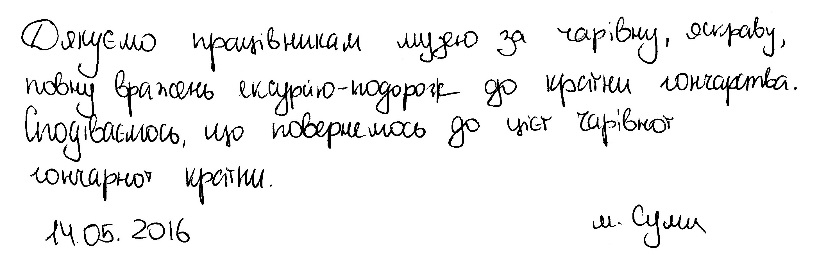 Дякуємо працівникам музею за чарівну, яскраву,
повну вражень екскурсію-подорож до країни гончарства.
Сподіваємось, що повернемось до цієї чарівної
гончарної країни.
14.05.2016 м. Суми